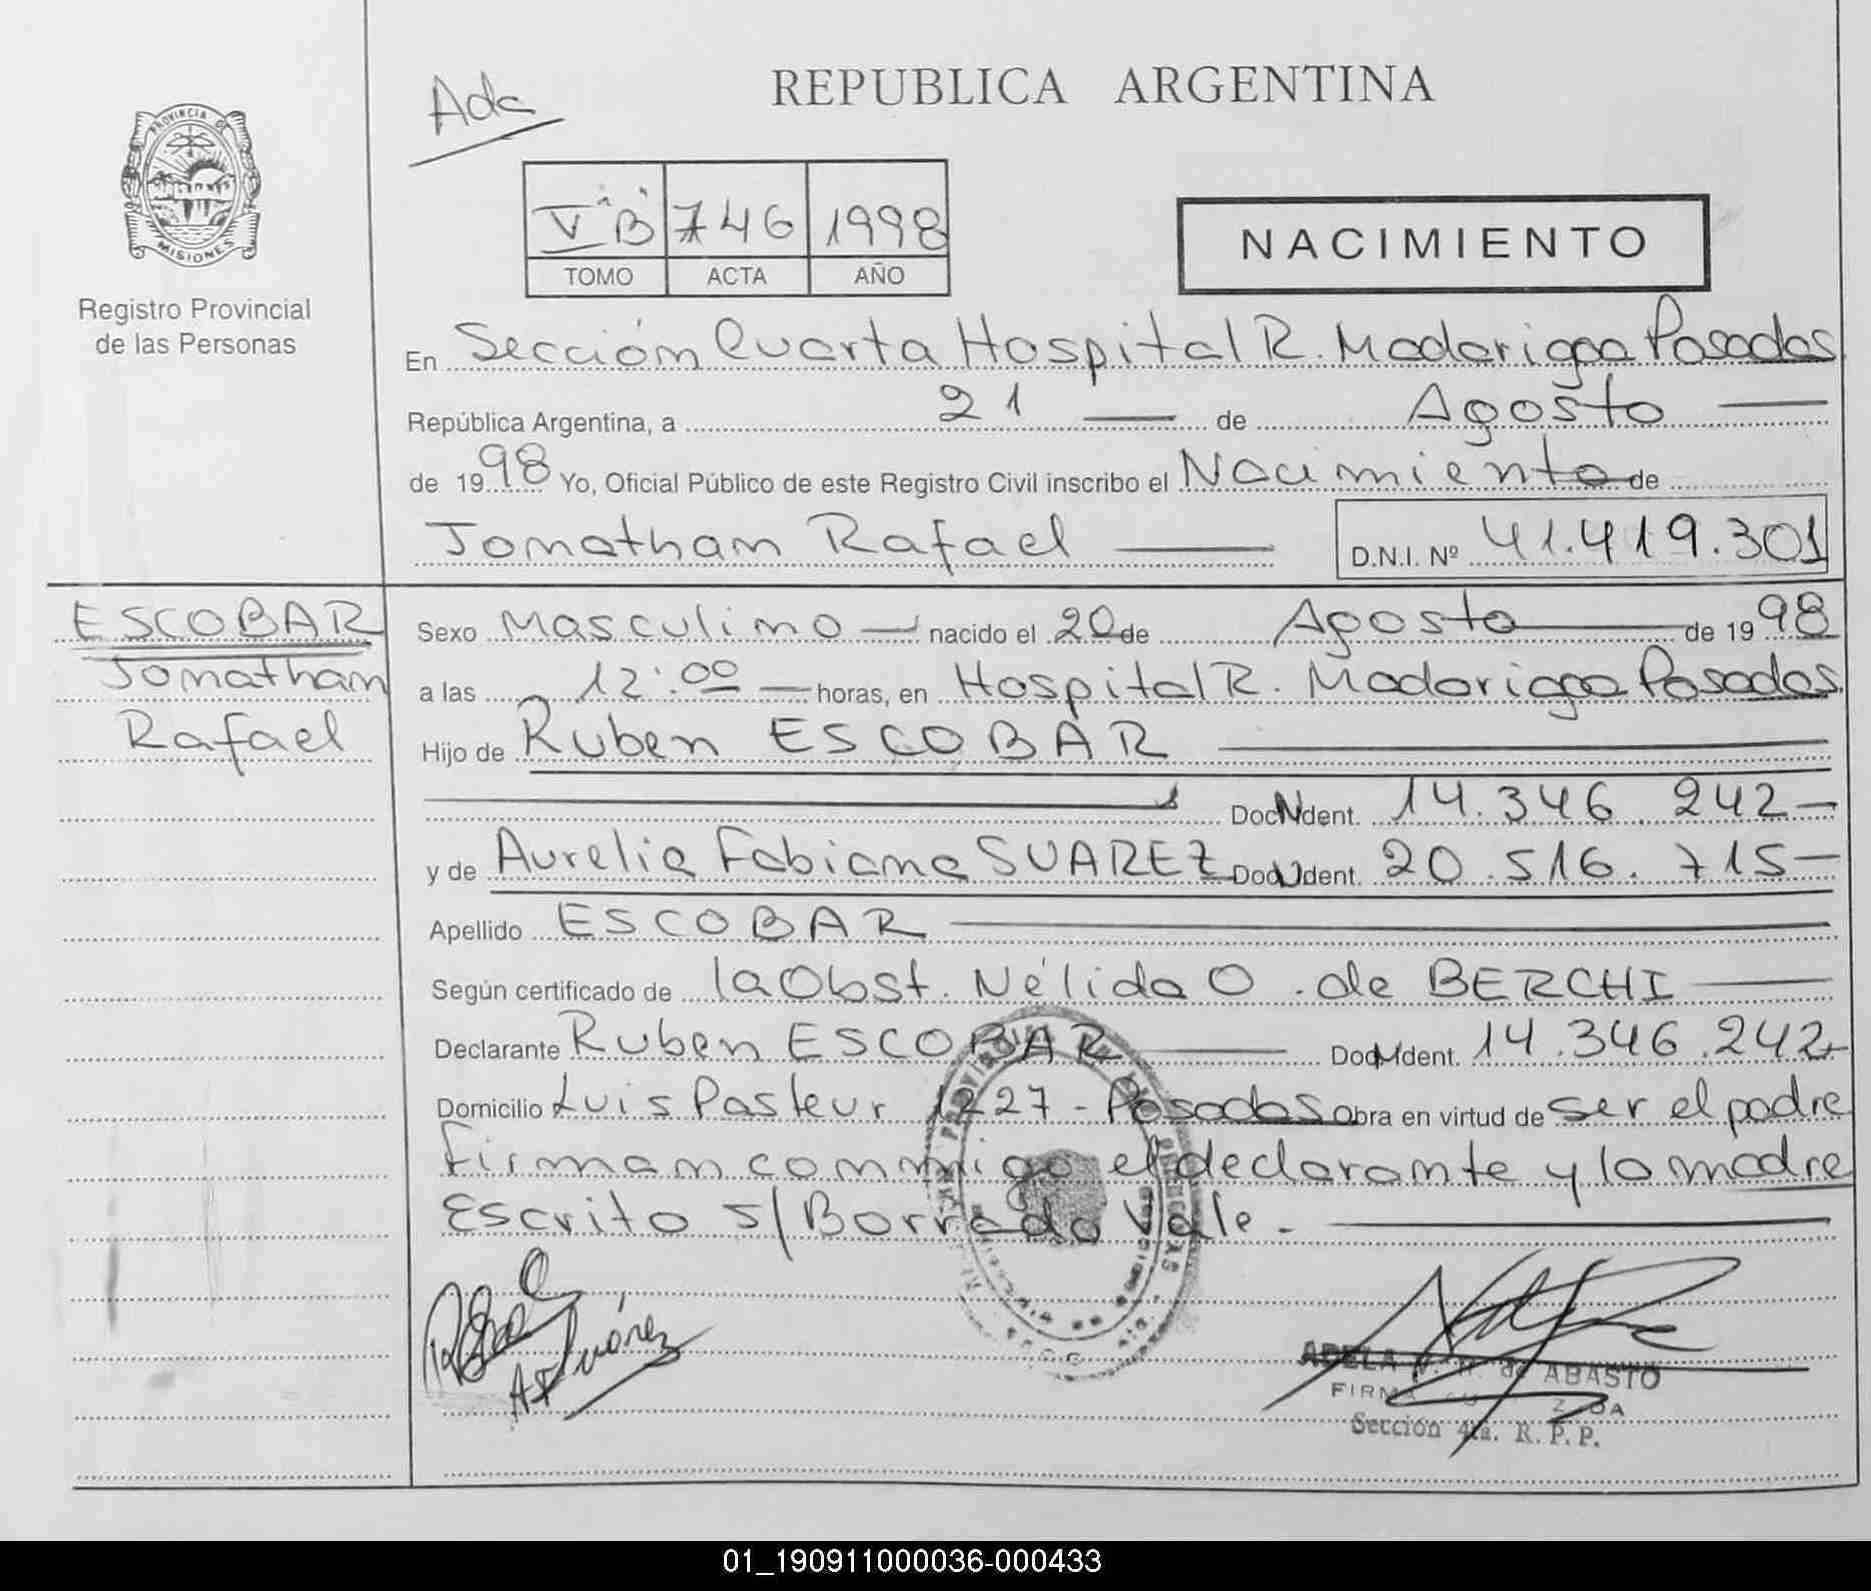 REPUBLICA ARGENTINA
Ada
PROVINCIA DE
MISIONES
V "B" 746 1998
TOMO ACTA AÑO
NACIMIENTO
Registro Provincial
de las Personas
En Sección Cuarta Hospital R. Madariaga Posadas
República Argentina, a 21 de Agosto
de 1998 Yo, Oficial Público de este Registro Civil inscribo el Nacimiento de
Jonathan Rafael D.N.I. Nº 41.419.301
ESCOBAR
Jonathan
Rafael
Sexo Masculino nacido el 20 de Agosto de 1998
a las 12:00 horas, en Hospital R. Madariaga Posadas
Hijo de Ruben ESCOBAR
Doc. Ident. 14.346.242
y de Aurelia Fabiana SUAREZ Doc. Ident. 20.516.715
Apellido ESCOBAR
Según certificado de la Obst. Nélida O. de BERCHI
Declarante Ruben ESCOBAR Doc. Ident. 14.346.242
Domicilio Luis Pasteur 1227 - Posadas Obra en virtud de ser el padre
firman conmigo el declarante y la madre
Escrito s/Borrado Vale.-
A F Suárez
ADELA de ABASTO
FIRMA
Sección 4ta. R. P. P.
01_190911000036-000433